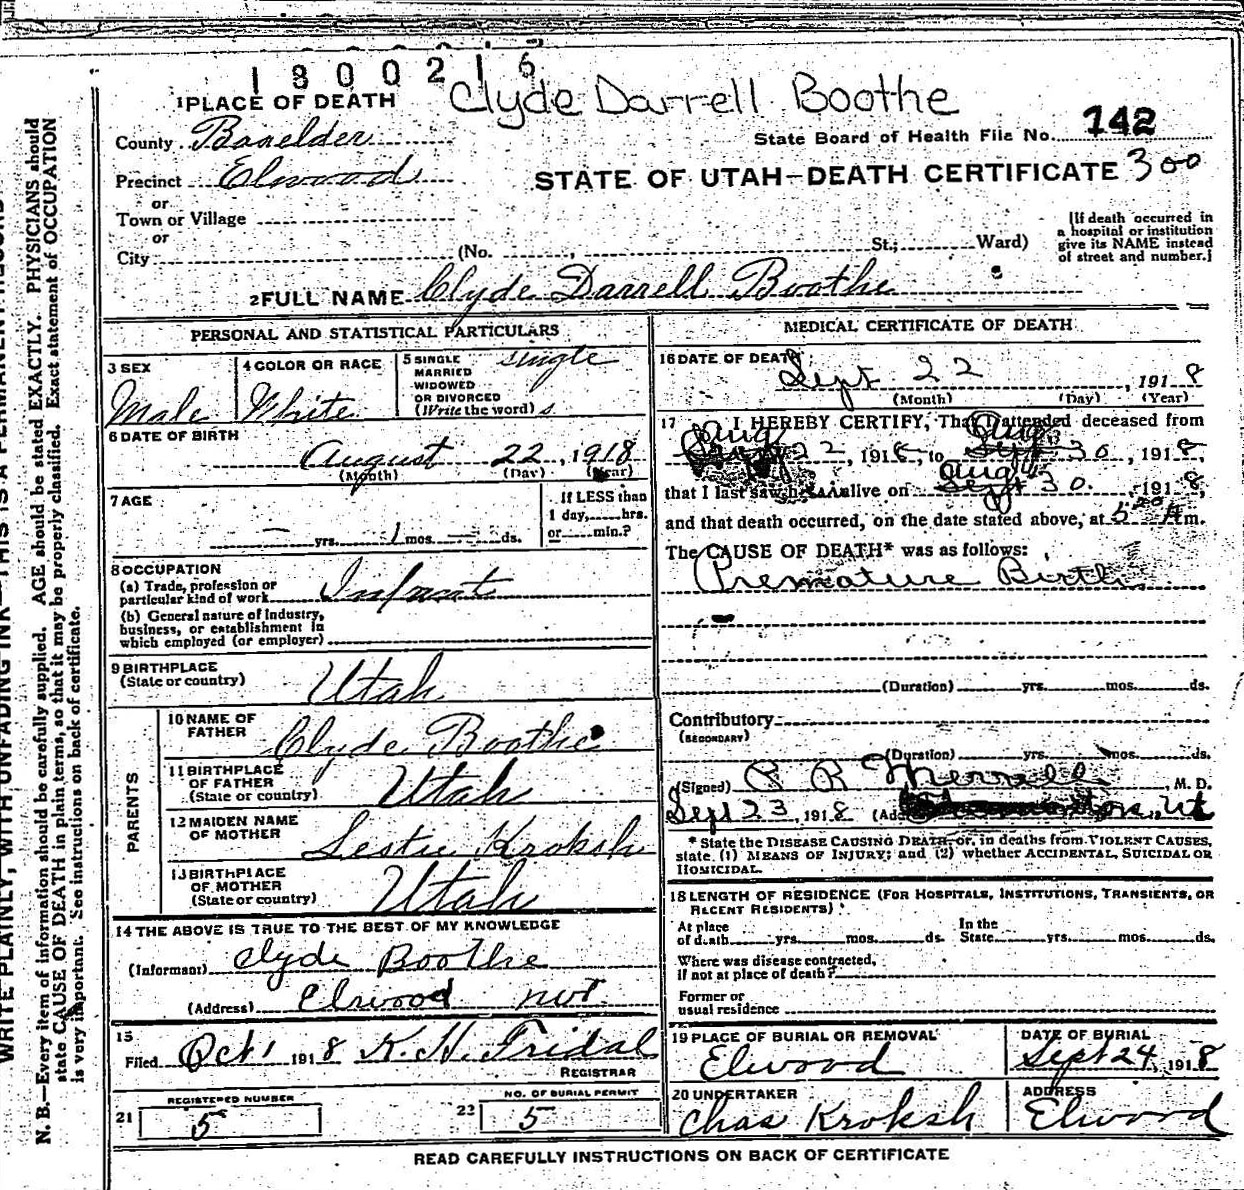 1800216
1 PLACE OF DEATH Clyde Darrell Boothe
County Boxelder State Board of Health File No. 142
Precinct Elwood STATE OF UTAH—DEATH CERTIFICATE 300
or
Town or Village
or
City (No. , St.; Ward)
[If death occurred in
a hospital or institution
give its NAME instead
of street and number.]
2 FULL NAME Clyde Darrell Boothe
PERSONAL AND STATISTICAL PARTICULARS
3 SEX
Male
4 COLOR OR RACE
White
5 SINGLE
MARRIED
WIDOWED
OR DIVORCED
(Write the word) s
single
6 DATE OF BIRTH
August 22, 1918
(Month) (Day) (Year)
7 AGE
– yrs. 1 mos. – ds.
If LESS than
1 day, hrs.
or min.?
8 OCCUPATION
(a) Trade, profession or
particular kind of work Infant
(b) General nature of industry,
business, or establishment in
which employed (or employer)
9 BIRTHPLACE
(State or country) Utah
PARENTS
10 NAME OF
FATHER Clyde Boothe
11 BIRTHPLACE
OF FATHER
(State or country) Utah
12 MAIDEN NAME
OF MOTHER Lestie Kroksh
13 BIRTHPLACE
OF MOTHER
(State or country) Utah
14 THE ABOVE IS TRUE TO THE BEST OF MY KNOWLEDGE
(Informant) Clyde Boothe
(Address) Elwood
15
Filed Oct 1 1918 K. H. Fridal
REGISTRAR
21 REGISTERED NUMBER
5
22 NO. OF BURIAL PERMIT
5
MEDICAL CERTIFICATE OF DEATH
16 DATE OF DEATH
Sept 22, 1918
(Month) (Day) (Year)
17 I HEREBY CERTIFY, That I attended deceased from
Aug 22, 1918, to Aug Sept 30, 1918,
that I last saw h alive on Aug Sept 30, 1918,
and that death occurred, on the date stated above, at 5 A m.
The CAUSE OF DEATH* was as follows:
Premature Birth
(Duration) yrs. mos. ds.
Contributory
(SECONDARY)
(Duration) yrs. mos. ds.
(Signed) R R Merrell, M. D.
Sept 23, 1918 (Ad Ut
* State the DISEASE CAUSING DEATH, or, in deaths from VIOLENT CAUSES,
state (1) MEANS OF INJURY; and (2) whether ACCIDENTAL, SUICIDAL OR
HOMICIDAL.
18 LENGTH OF RESIDENCE (FOR HOSPITALS, INSTITUTIONS, TRANSIENTS, OR
RECENT RESIDENTS)
At place
of death yrs. mos. ds.
In the
State yrs. mos. ds.
Where was disease contracted,
if not at place of death?
Former or
usual residence
19 PLACE OF BURIAL OR REMOVAL
Elwood
DATE OF BURIAL
Sept 24, 1918
20 UNDERTAKER
Chas Kroksh
ADDRESS
Elwood
READ CAREFULLY INSTRUCTIONS ON BACK OF CERTIFICATE
WRITE PLAINLY, WITH UNFADING INK—THIS IS A PERMANENT RECORD
N. B.—Every item of information should be carefully supplied. AGE should be stated EXACTLY. PHYSICIANS should
state CAUSE OF DEATH in plain terms, so that it may be properly classified. Exact statement of OCCUPATION
is very important. See instructions on back of certificate.